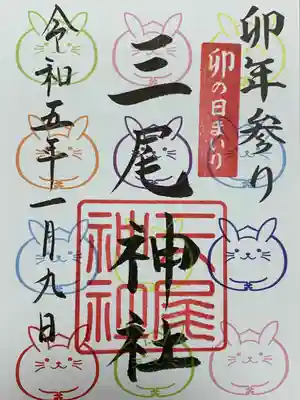 卯年参り
卯の日まいり
三尾神社
三尾
神社
令和五年一月九日